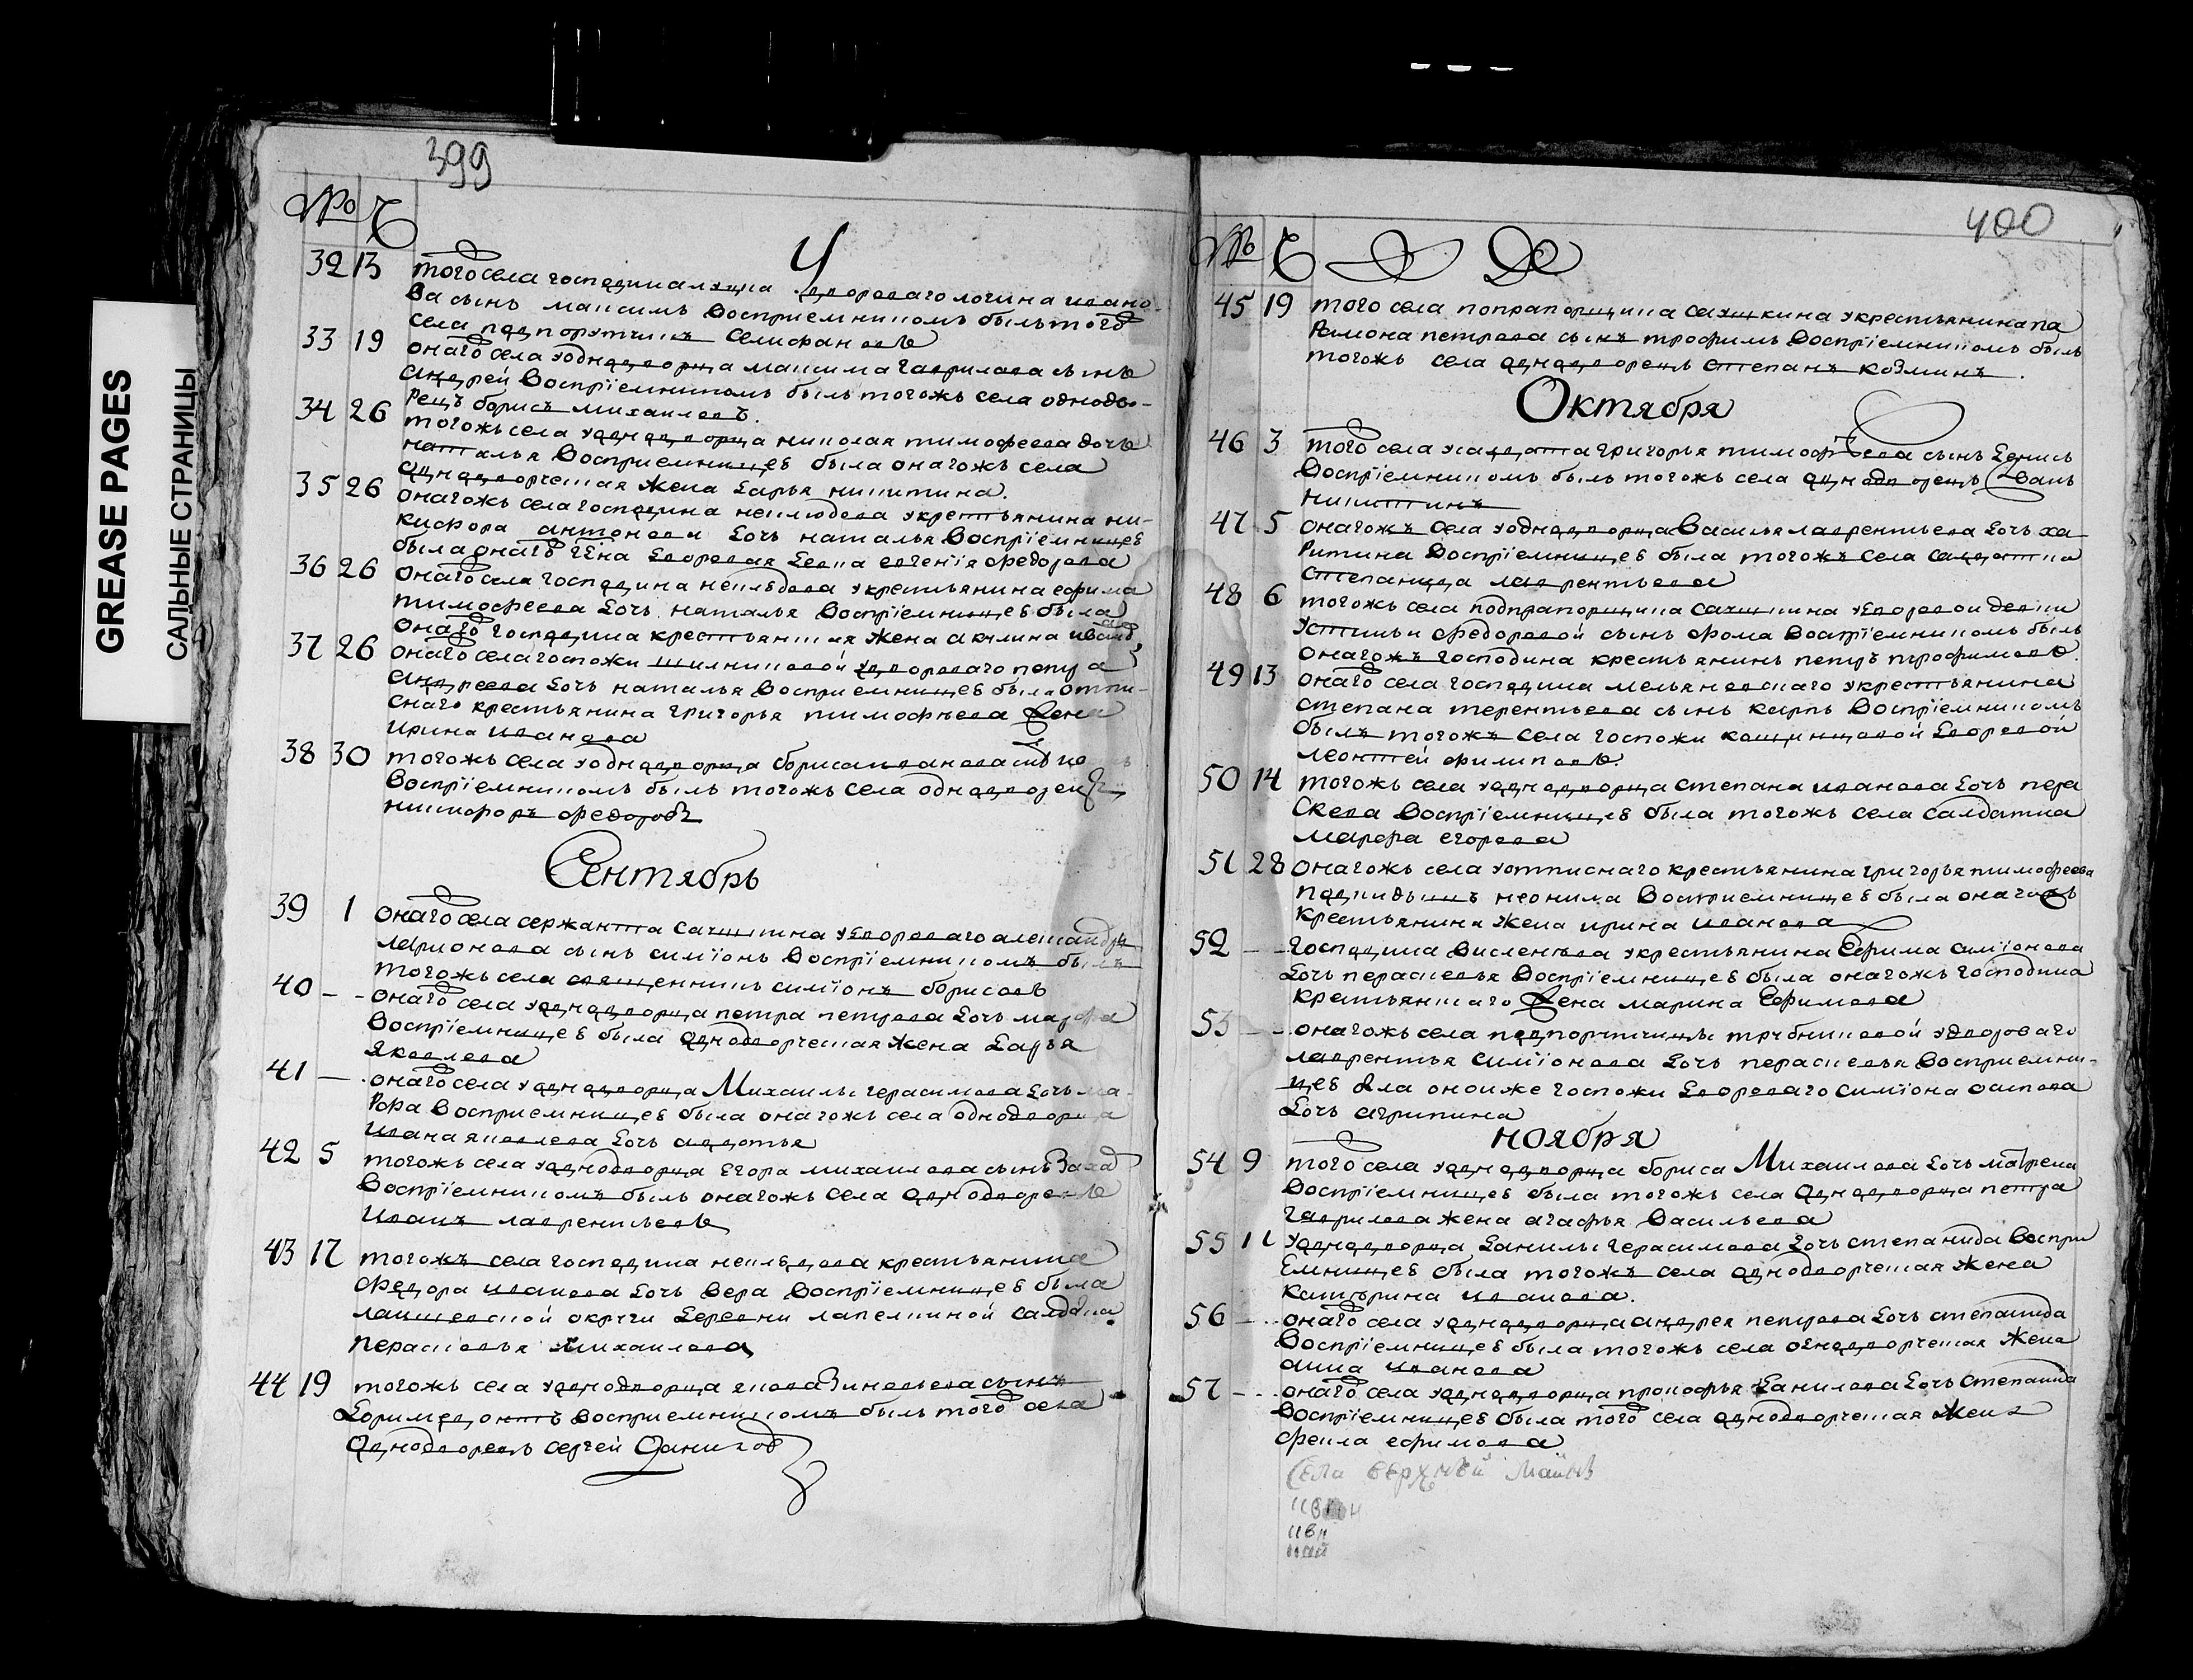 GREASE PAGES
САЛЬНЫЕ СТРАНИЦЫ
399
№ Ч
32 13 того села господина дворового логина ивано-
ва сынъ максимъ восприемникомъ былъ того
села подпорутчикъ селифановъ
33 19 онаго села уоднодворца максима гаврилова сынъ
андрей воспрїемникомъ былъ тогожъ села однодво-
рецъ борисъ михаиловъ.
34 26 тогожъ села уоднодворца николая тимофеева дочь
наталья восприемницею была онагожъ села
однодворческая жена дарья никитина.
35 26 онагожъ села господина неклюдова укрестьянина ни-
кифора антонова дочь наталья воспрїемницею
была онаго гдна дворовая девка евгенїя федорова
36 26 онаго села господина укрестьянина ефима
тимофеева дочь наталья воспрїемницею была
онаго господина крестьянская жена акулина иванова
37 26 онаго села госпожи удворового петра
андреева дочь наталья восприемницею была отпи-
снаго крестьянина григорья тимофѣева жена
ирина иванова
38 30 тогожъ села уоднодворца бориса иванова сынъ
воспрїемникомъ былъ тогожъ села однодворецъ
никифоръ федоровъ
Сентябрь
39 1 онаго села сержанта удворового александра
ларионова сынъ симїонъ воспрїемникомъ былъ
тогожъ села священникъ симїонъ борисовъ
40 – - онаго села уоднодворца петра петрова дочь марфа
воспрїемницею была однодворческая жена дарья
яковлева
41 — онаго села уоднодворца Михаилы герасимова дочь ма-
рфа восприемницею была онагожъ села однодворца
ивана яковлева дочь авдотья
42 5 тогожъ села уоднодворца егора михаилова сынъ захаръ
воспрїемникомъ былъ онагожъ села однодворецъ
иванъ лаврентьевъ
43 17 тогожъ села господина крестьянина
федора иванова дочь вера воспрїемницею была
лаишевской округи деревни салдатка
парасковья михаилова
44 19 тогожъ села уоднодворца якова зиновьева сынъ
восприемникомъ былъ того села
однодворецъ сергей даниловъ
400
№ Ч
45 19 того села попрапорщика укрестьянина па
рамона петрова сынъ трофимъ воспрїемникомъ былъ
тогожъ села однодворецъ степанъ козминъ.
Октября
46 3 того села усалдата григорья тимофѣева сынъ денисъ
воспрїемникомъ былъ тогожъ села однодворецъ иванъ
никитинъ
47 5 онагожъ села уоднодворца василья лаврентьева дочь ха
ритина воспрїемницею была тогожъ села салдатка
степанида лаврентьева
48 6 тогожъ села подпрапорщика удворовой девки
устиньи федоровой сынъ фома воспрїемникомъ былъ
онагожъ господина крестьянинъ петръ трофимовъ
49 13 онаго села господина укрестьянина
степана терентьева сынъ карпъ воспрїемникомъ
былъ тогожъ села госпожи дворовой
леонтей филиповъ.
50 14 тогожъ села уоднодворца степана иванова дочь пара
скева воспрїемницею была тогожъ села салдатка
марфа егорова
51 28 онагожъ села уотписнаго крестьянина григорья тимофеева
подкидышъ неонила восприемницею была онагожъ
крестьянина жена ирина иванова
52 – - господина укрестьянина ефима симїонова
дочь парасковья воспрїемницею была онагожъ господина
жена марина ефимова
53 – - онагожъ села удворового
лаврентья симїонова дочь парасковья восприемни-
цею была оноиже госпожи дворового симїона осипова
дочь агрипина
ноября
54 9 того села уоднодворца бориса Михаилова дочь матрена
воспрїемницею была тогожъ села однодворца петра
гаврилова жена агафья васильева
55 11 уоднодворца данилы герасимова дочь степанида воспри
емницею была тогожъ села однодворческая жена
катерина иванова.
56 – - онаго села уоднодворца андрея петрова дочь степанида
воспрїемницею была тогожъ села однодворческая жена
анна иванова
57 - - онаго села уоднодворца прокофья данилова дочь степанида
воспрїемницею была того села однодворческая жена
фекла ефимова
Села верхней майнъ